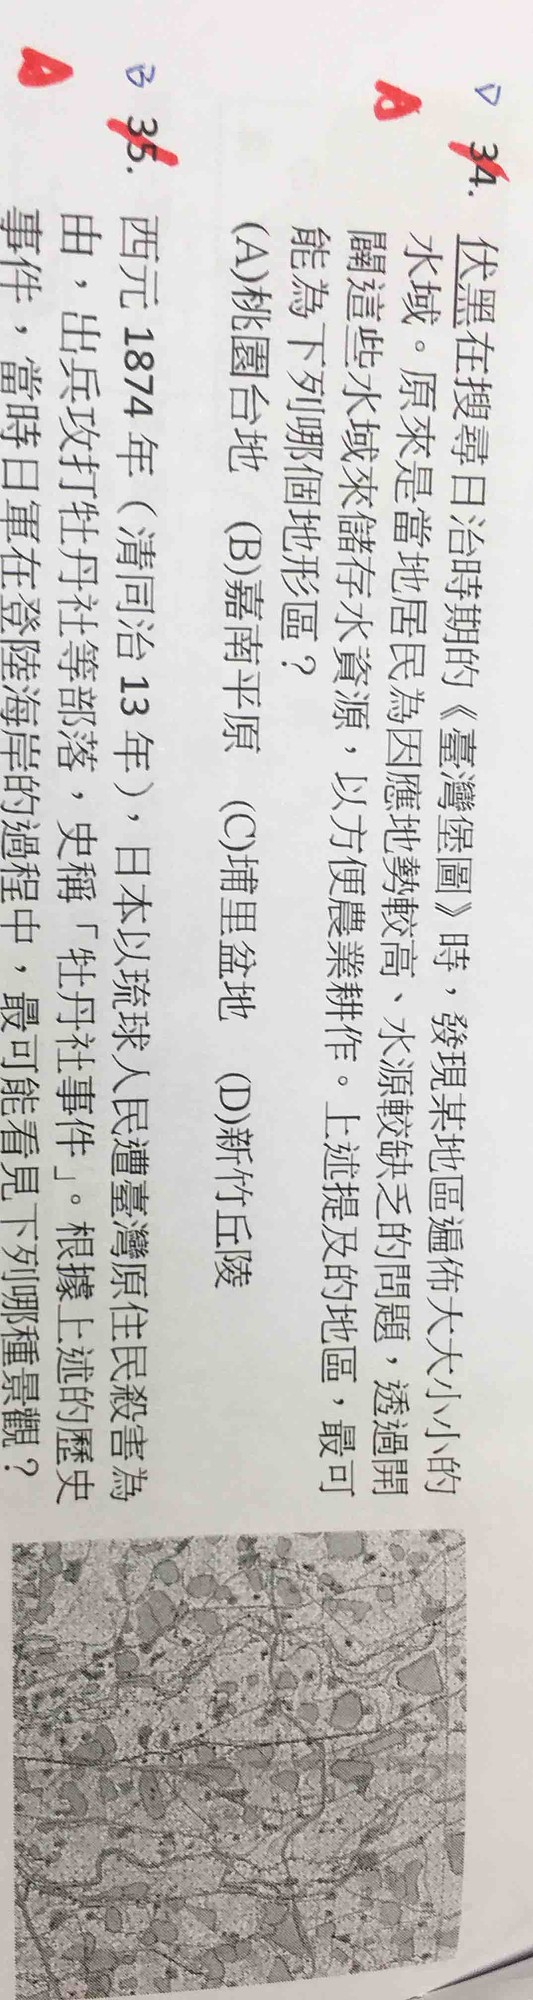 D 34. 伏黑在搜尋日治時期的《臺灣堡圖》時，發現某地區遍佈大大小小的
A 水域。原來是當地居民為因應地勢較高、水源較缺乏的問題，透過開
闢這些水域來儲存水資源，以方便農業耕作。上述提及的地區，最可
能為下列哪個地形區？
(A)桃園台地 (B)嘉南平原 (C)埔里盆地 (D)新竹丘陵
B 35. 西元 1874 年（清同治 13 年），日本以琉球人民遭臺灣原住民殺害為
由，出兵攻打牡丹社等部落，史稱「牡丹社事件」。根據上述的歷史
A 事件，當時日軍在登陸海岸的過程中，最可能看見下列哪種景觀？